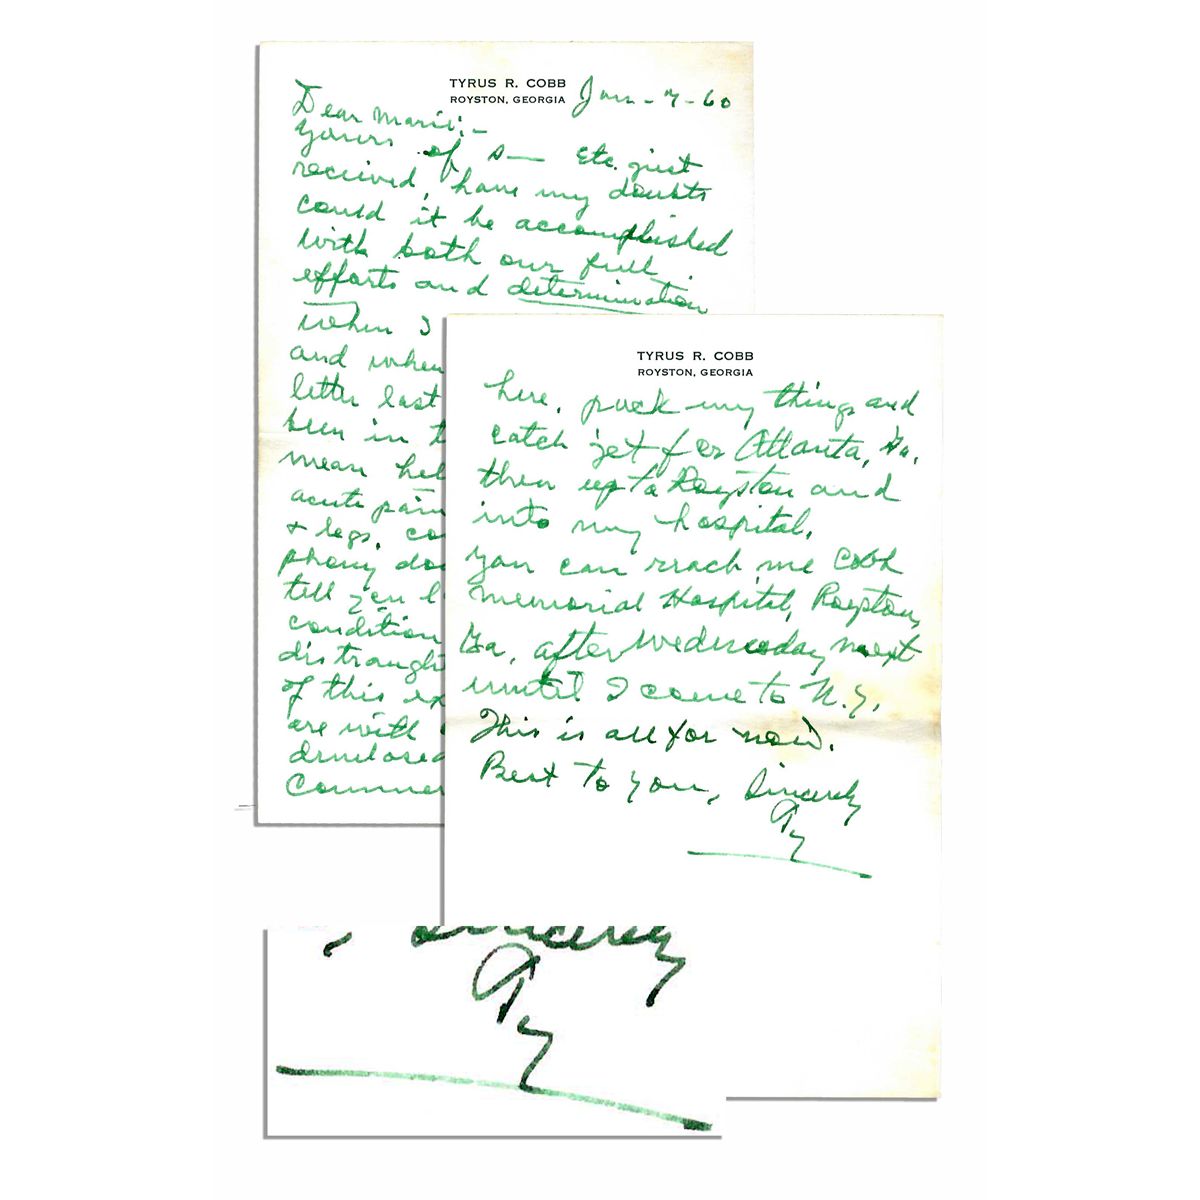 TYRUS R. COBB
ROYSTON, GEORGIA
Jan - 7 - 60
Dear Marie:-
Yours of etc. just
received, have my doubts
could it be accomplished
with both our full
efforts and determination
when I
and when
letter last
been in
mean
acute pain
& legs,
phony
tell you
condition
distraught
of this
are with
Commer
TYRUS R. COBB
ROYSTON, GEORGIA
here, pack my things and
catch jet for Atlanta, Ga.
then up to Royston and
into my hospital.
You can reach me Cobb
Memorial Hospital, Royston,
Ga, after Wednesday next
until I come to N.Y.
This is all for now.
Best to you, Sincerely
Ty
Sincerely
Ty